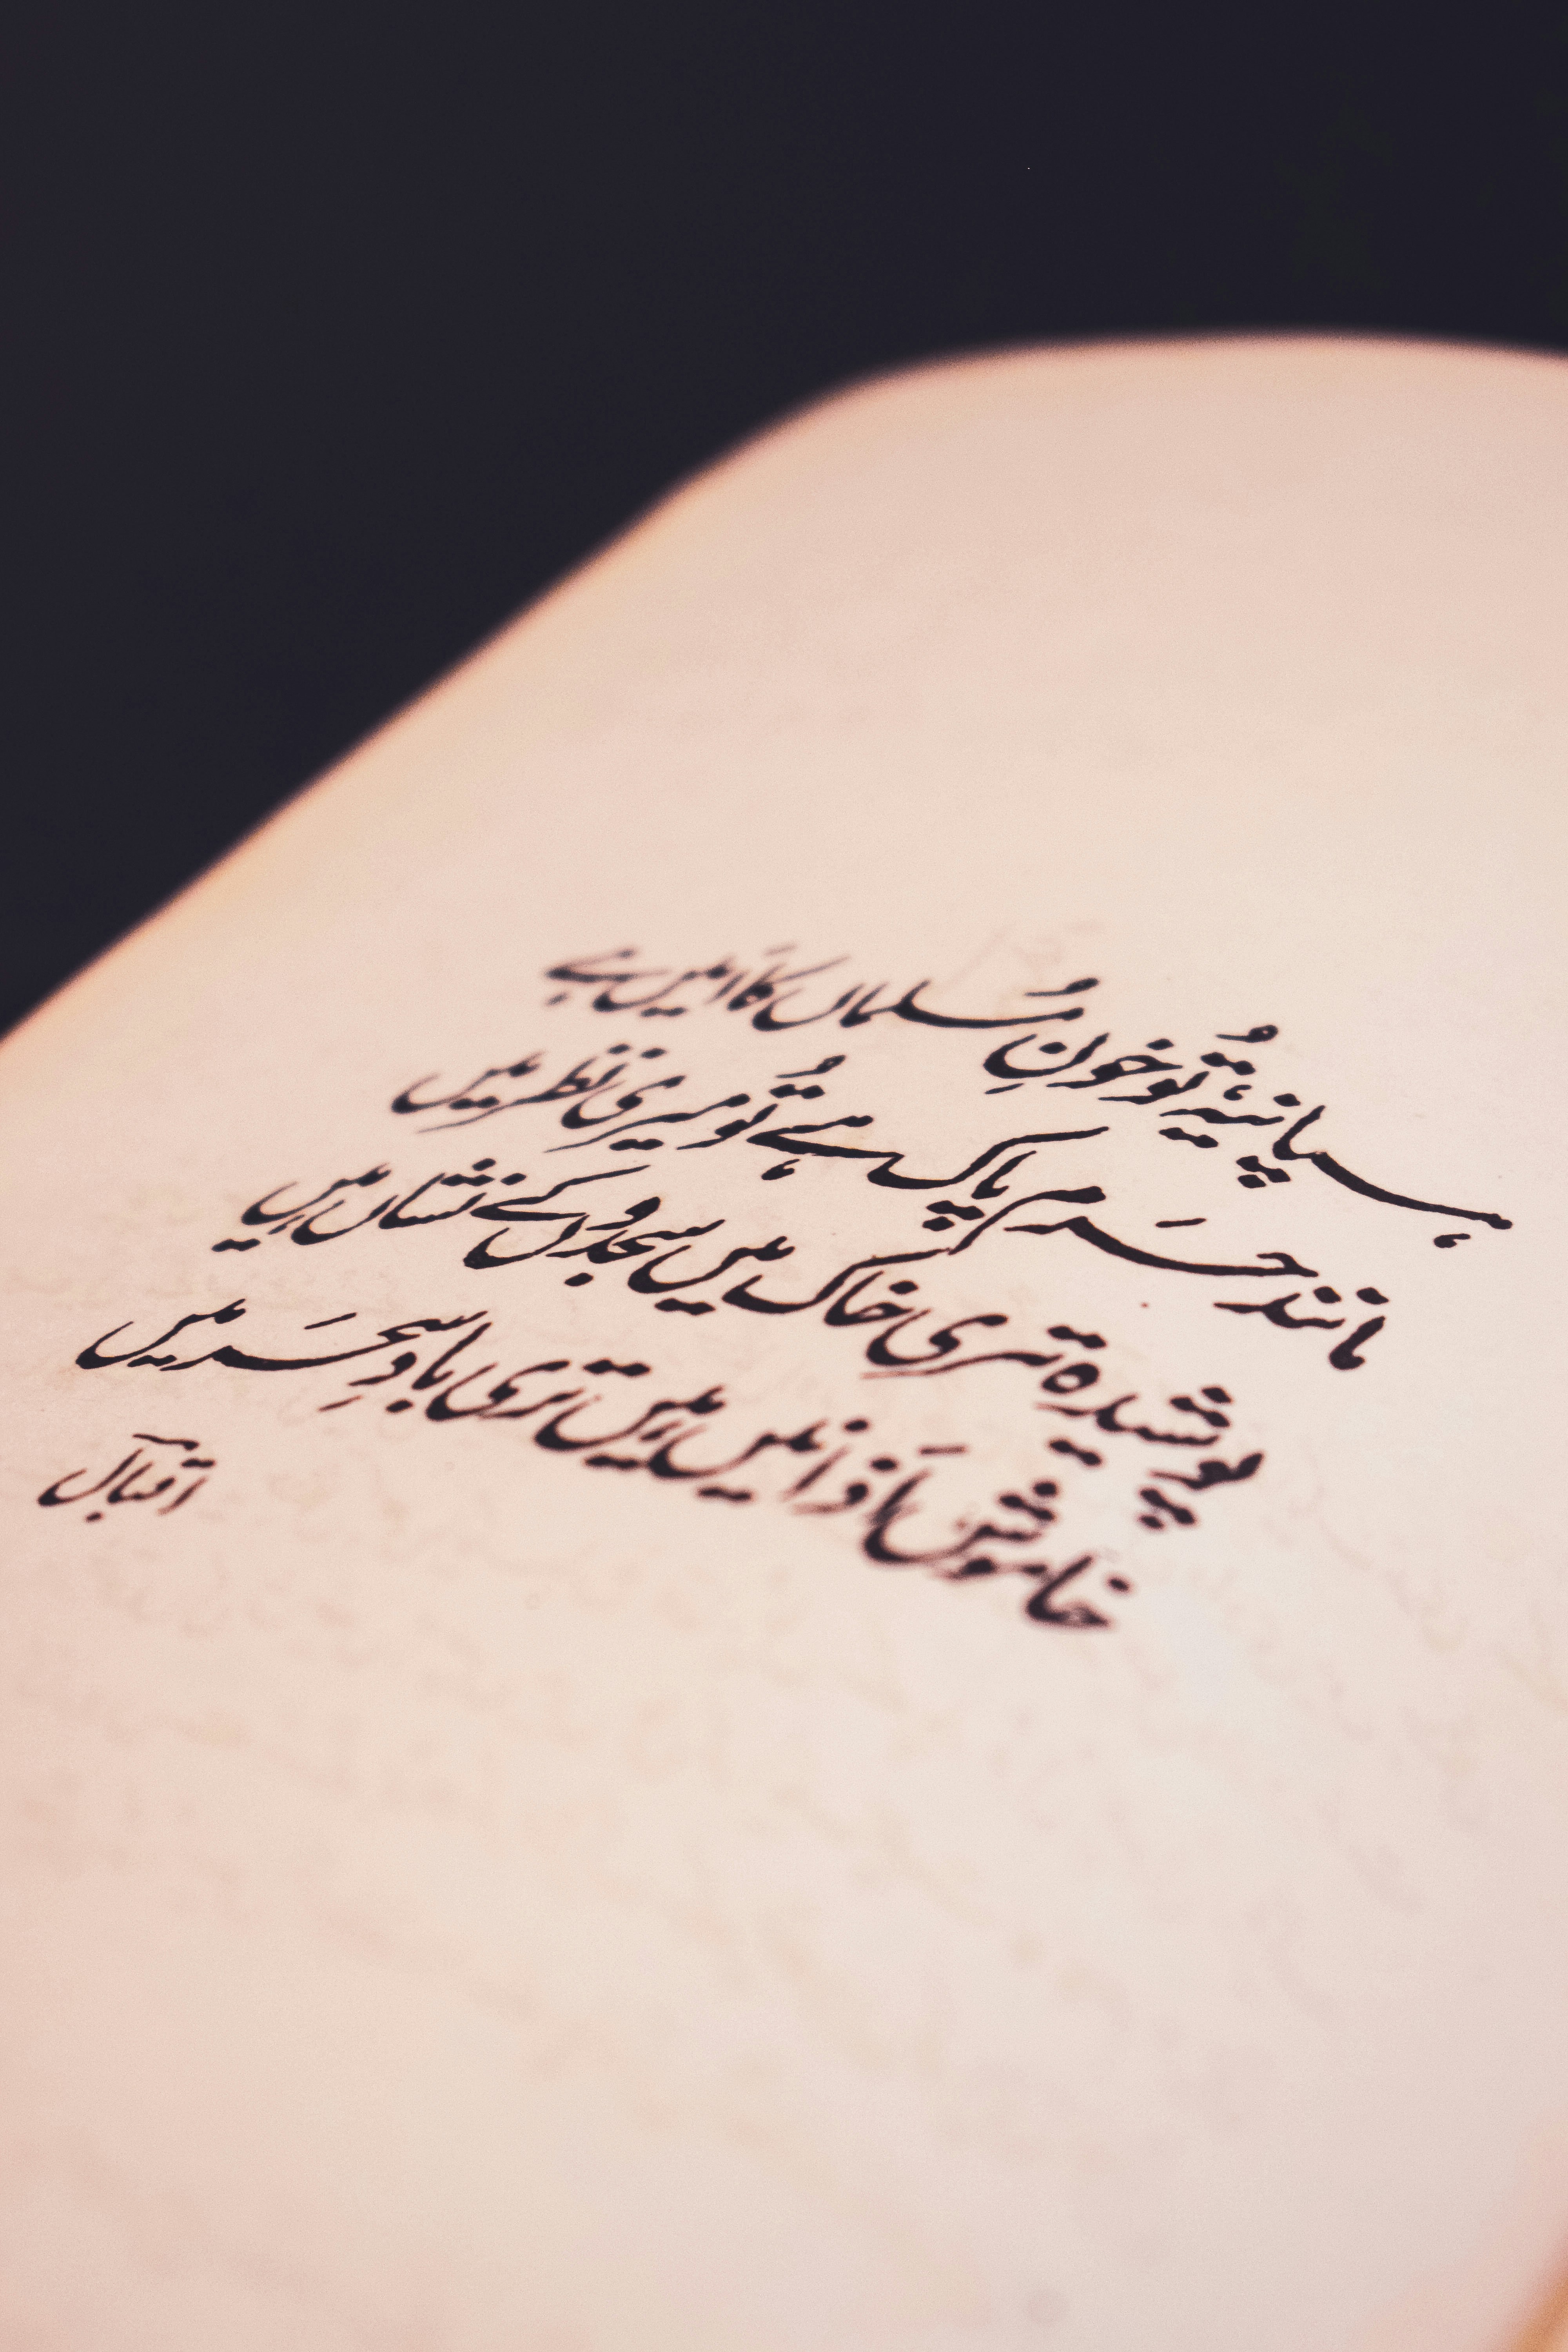 ہسپانیہ تُو خونِ مُسلماں کا امیں ہے
مانند حرَم پاک ہے تُو میری نظر میں
پوشیدہ تری خاک میں سجدوں کے نشاں ہیں
خاموش اَذانیں ہیں تری بادِ سحَر میں
اقبال